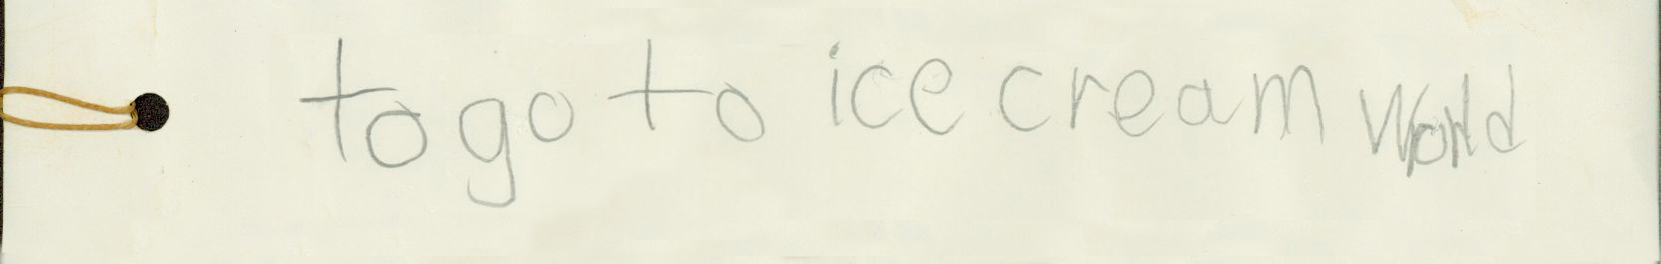 to go to ice cream World